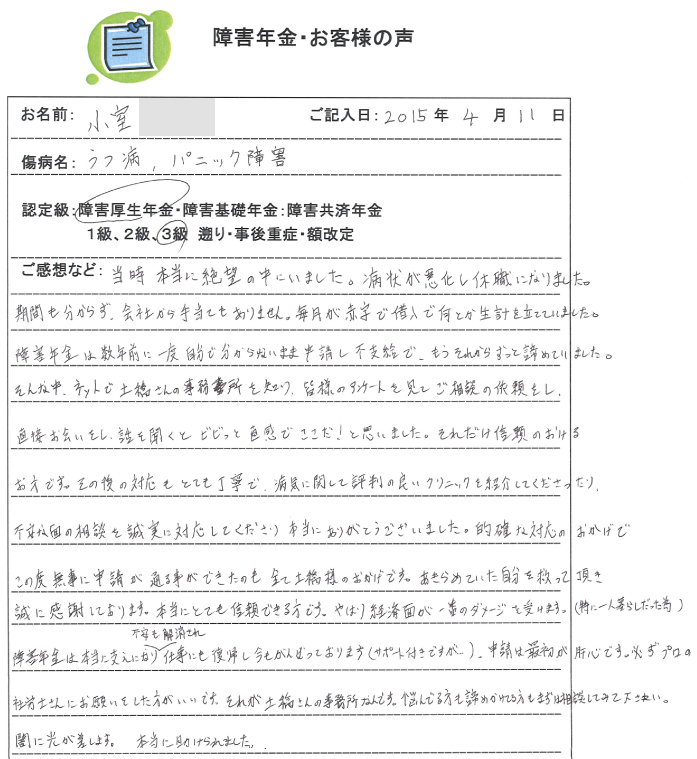 障害年金・お客様の声
お名前: 小室 ご記入日: 2015年 4 月 11 日
傷病名: うつ病, パニック障害
認定級: 障害厚生年金・障害基礎年金：障害共済年金
1級、2級、3級 遡り・事後重症・額改定
ご感想など: 当時 本当に絶望の中にいました。病状が悪化し休職になりました。
期間も分からず、会社から手当てもありません。毎月が赤字で借入で何とか生計を立てていました。
障害年金は数年前に一度自分で分からないまま申請し不支給で、もうそれからずっと諦めていました。
そんな中、ネットで土橋さんの事務所を知り、皆様のアンケートを見てご相談の依頼をし、
直接お会いをし、話を聞くとビビっと直感でここだ！と思いました。それだけ信頼のおける
お方です。その後の対応もとても丁寧で、病気に関して評判の良いクリニックを紹介してくださったり、
不安な面の相談を誠実に対応してくださり本当にありがとうございました。的確な対応のおかげで
この度無事に申請が通る事ができたのも全て土橋様のおかげです。あきらめていた自分を救って頂き
誠に感謝しております。本当にとても信頼できる方です。やはり経済面が一番のダメージを受けます。(特に一人暮らしだった為)
不安も解消され
障害年金は本当に支えになり仕事にも復帰し今もがんばっております(サポート付きですが…)。申請は最初が肝心です。必ずプロの
社労士さんにお願いをした方がいいです。それが土橋さんの事務所なんです。悩んでる方も諦めかけてる方もまずは相談してみて下さい。
闇に光が差します。 本当に助けられました。